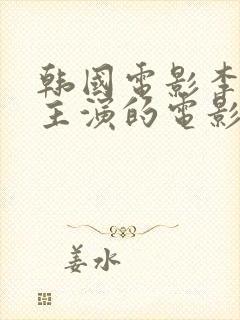 韩國電影李
主演的電影
姜水